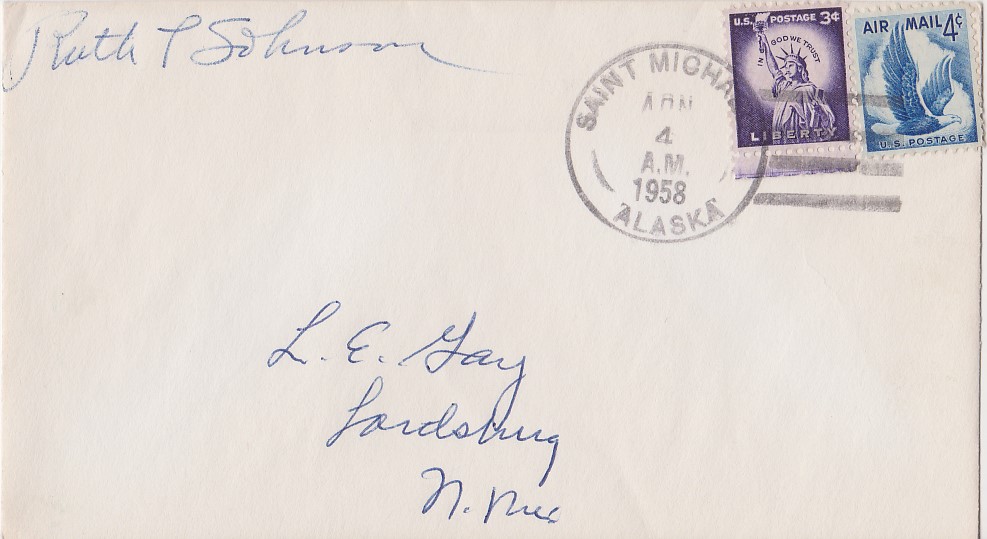 Ruth T Johnson
U.S. POSTAGE 3¢
IN GOD WE TRUST
LIBERTY
AIR MAIL 4¢
U.S. POSTAGE
SAINT MICHAE
4
A.M.
1958
ALASKA
L. E. Gay
Lordsburg
N. Mex